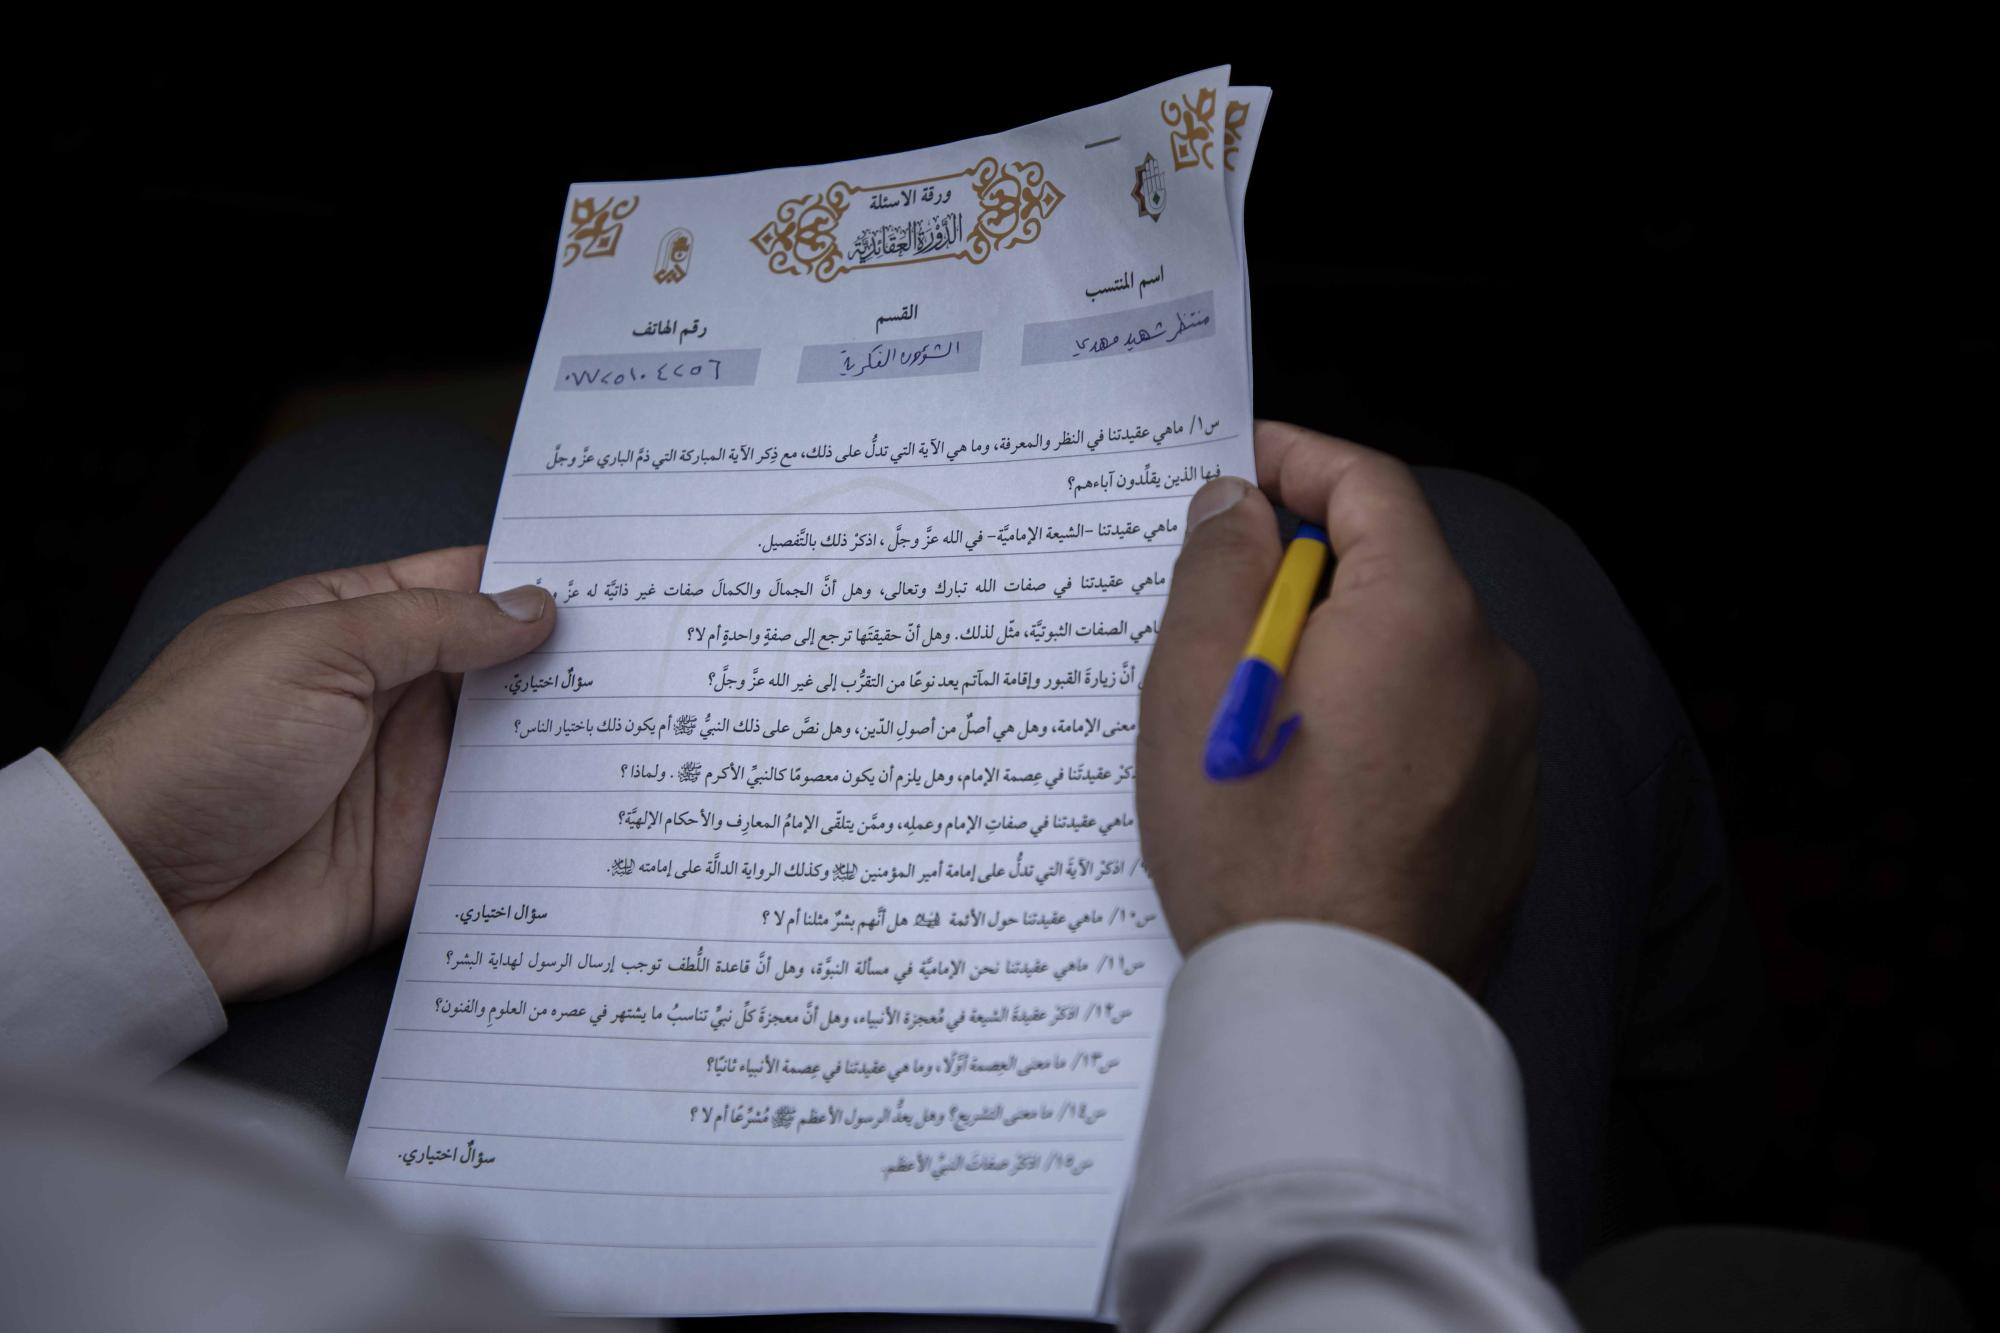 ورقة الاسئلة
الدَّوْرَةُ العَقَائِدِيَّة
اسم المنتسب
القسم
رقم الهاتف
منتظر شهيد مهدي
الشؤون الفكرية
٠٧٧٢٥١٠٤٢٥٦
س١/ ماهي عقيدتنا في النظر والمعرفة، وما هي الآية التي تدلُّ على ذلك، مع ذِكر الآية المباركة التي ذمَّ الباري عزَّ وجلَّ
فيها الذين يقلِّدون آباءهم؟
ماهي عقيدتنا -الشيعة الإماميَّة- في الله عزَّ وجلَّ، اذكرْ ذلك بالتَّفصيل.
ماهي عقيدتنا في صفات الله تبارك وتعالى، وهل أنَّ الجمالَ والكمالَ صفات غير ذاتيَّة له عزَّ
ماهي الصفات الثبوتيَّة، مثّل لذلك. وهل أنّ حقيقتَها ترجع إلى صفةٍ واحدةٍ أم لا؟
أنَّ زيارةَ القبور وإقامة المآتم يعد نوعًا من التقرُّب إلى غير الله عزَّ وجلَّ؟ سؤالٌ اختياريّ.
معنى الإمامة، وهل هي أصلٌ من أصولِ الدّين، وهل نصَّ على ذلك النبيُّ ﷺ أم يكون ذلك باختيار الناس؟
عقيدتَنا في عِصمة الإمام، وهل يلزم أن يكون معصومًا كالنبيِّ الأكرم ﷺ. ولماذا؟
ماهي عقيدتنا في صفاتِ الإمام وعملِه، وممَّن يتلقّى الإمامُ المعارِف والأحكام الإلهيَّة؟
اذكرْ الآيةَ التي تدلُّ على إمامة أمير المؤمنين وكذلك الرواية الدالَّة على إمامته.
س١٠/ ماهي عقيدتنا حول الأئمة هل أنَّهم بشرٌ مثلنا أم لا؟ سؤال اختياري.
س١١/ ماهي عقيدتنا نحن الإماميَّة في مسألة النبوَّة، وهل أنَّ قاعدة اللُّطف توجب إرسال الرسول لهداية البشر؟
س١٢/ اذكرْ عقيدةَ الشيعة في مُعجزة الأنبياء، وهل أنَّ معجزةَ كلِّ نبيٍّ تناسبُ ما يشتهر في عصره من العلومِ والفنون؟
س١٣/ ما معنى العِصمة أوَّلًا، وما هي عقيدتنا في عِصمة الأنبياء ثانيًا؟
س١٤/ ما معنى التشريع؟ وهل يعدُّ الرسول الأعظم ﷺ مُشرِّعًا أم لا؟
س١٥/ اذكرْ صفاتَ النبيِّ الأعظم. سؤالٌ اختياري.